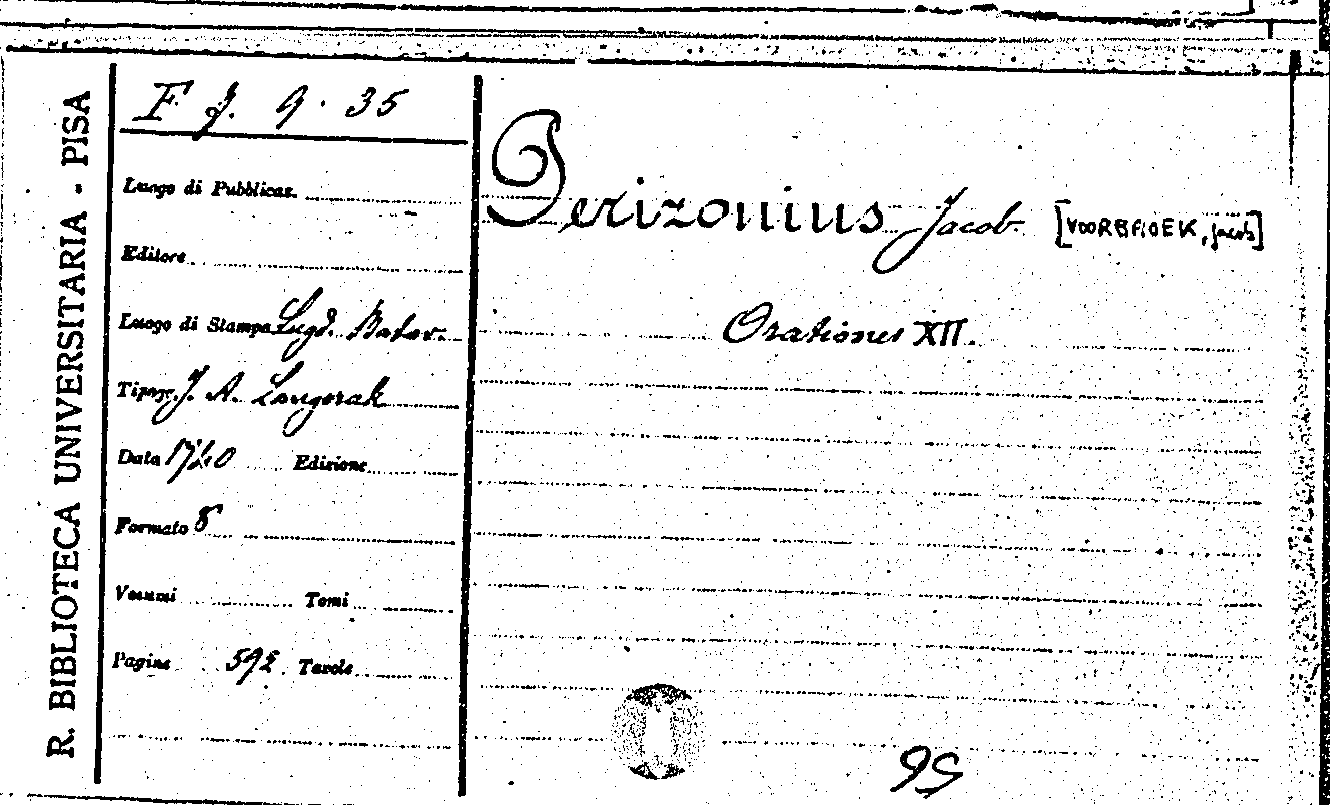 R. BIBLIOTECA UNIVERSITARIA - PISA
F J. 9. 35
Luogo di Pubblicaz.
Editore
Luogo di Stampa Lugd. Batav.
Tipogr. J. A. Langerak
Data 1740 Edizione
Formato 8
Volumi Tomi
Pagine 592. Tavole
Perizonius Jacob [VOORBROEK, Jacob]
Orationes XII.